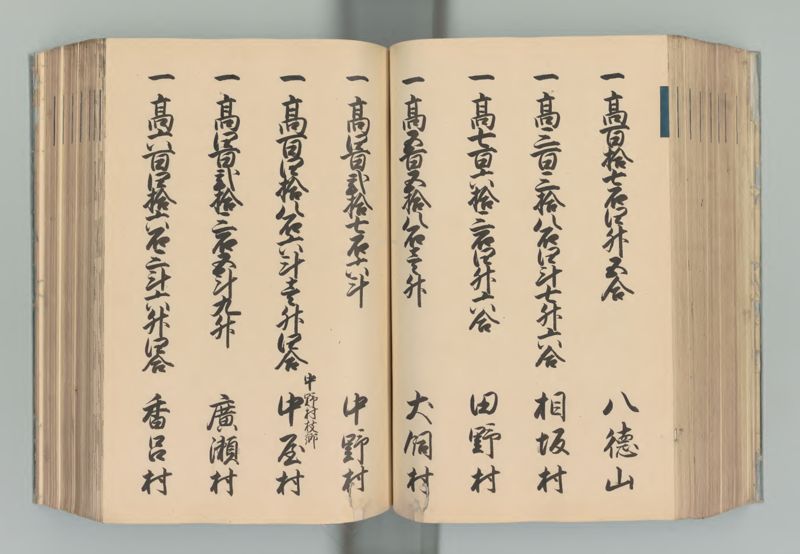 一 高百拾七石四升五合 八德山
一 高三百三拾八石四斗七升六合 相坂村
一 高七百六拾三石四升六合 田野村
一 高五百五拾八石壱升 犬飼村
一 高四百弐拾七石六斗 中野村
一 高百四拾八石六斗壱升四合 中野村枝郷 中屋村
一 高四百弐拾三石五斗九升 廣瀬村
一 高六百四拾六石三斗六升四合 香呂村